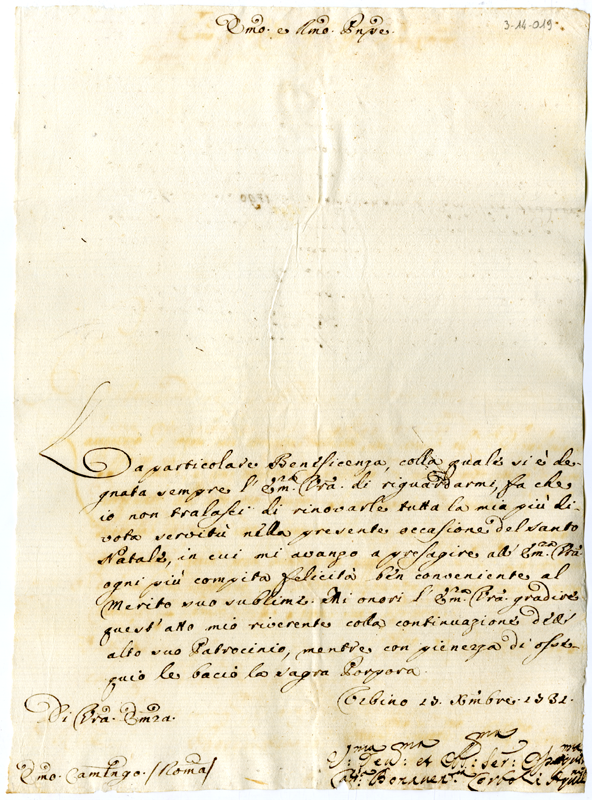 Emo. e Rmo. Pnpe.
3-14-019
La particolare Beneficenza, colla quale si è de-
gnata sempre l'Emza. Vra. di riguardarmi, fa che
io non tralasci di rinovarle tutta la mia più di-
vota servitù nella presente occasione del Santo
Natale, in cui mi avanzo a presagire all'Emza. Vra.
ogni più compita felicità ben conveniente al
Merito suo sublime. Mi onori l'Emza. Vra. gradire
quest'atto mio riverente colla continuazione dell'
alto suo Patrocinio, mentre con pienezza di osse-
quio le bacio la sagra Porpora.
Urbino 13. Xmbre. 1731.
Di Vra. Emza.
Emo. Camlngo. /Roma/